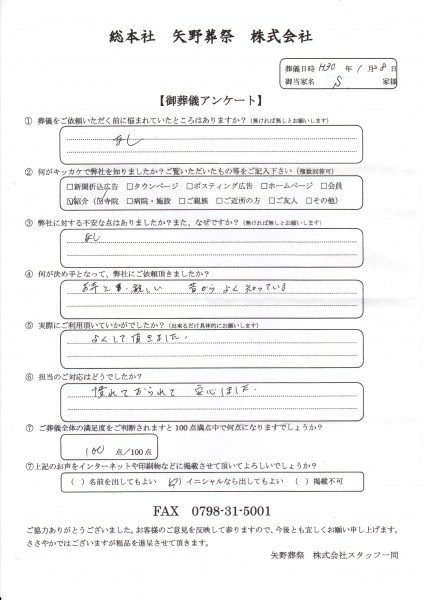 総本社 矢野葬祭 株式会社
葬儀日時 H30 年 1 月 28 日
御当家名 S. 家様
【御葬儀アンケート】
① 葬儀をご依頼いただく前に悩まれていたところはありますか?(無ければ無しとお願いします)
なし
② 何がキッカケで弊社を知りましたか?ご覧いただいたもの等をご記入下さい(複数回答可)
□新聞折込広告 □タウンページ □ポスティング広告 □ホームページ □会員
☑紹介(☑寺院 □病院・施設 □ご親族 □ご近所の方 □ご友人 □その他)
③ 弊社に対する不安な点はありましたか?また、なぜですか?(無ければ無しとお願いします)
なし
④ 何が決め手となって、弊社にご依頼頂きましたか?
お寺と 親しい 昔から よく 知っている
⑤ 実際にご利用頂いていかがでしたか?(出来るだけ具体的にお願いします)
よくして頂きました.
⑥ 担当のご対応はどうでしたか?
慣れておられて 安心しました.
⑦ ご葬儀全体の満足度をご判断されますと100点満点中で何点になりますでしょうか?
100 点/100点
⑦上記のお声をインターネットや印刷物などに掲載させて頂いてよろしいでしょうか?
( )名前を出してもよい (○)イニシャルなら出してもよい ( )掲載不可
FAX 0798-31-5001
ご協力ありがとうございました。お客様のご意見を反映して参りますので、今後とも宜しくお願い申し上げます。
ささやかではございますが粗品を進呈させて頂きます。
矢野葬祭 株式会社スタッフ一同